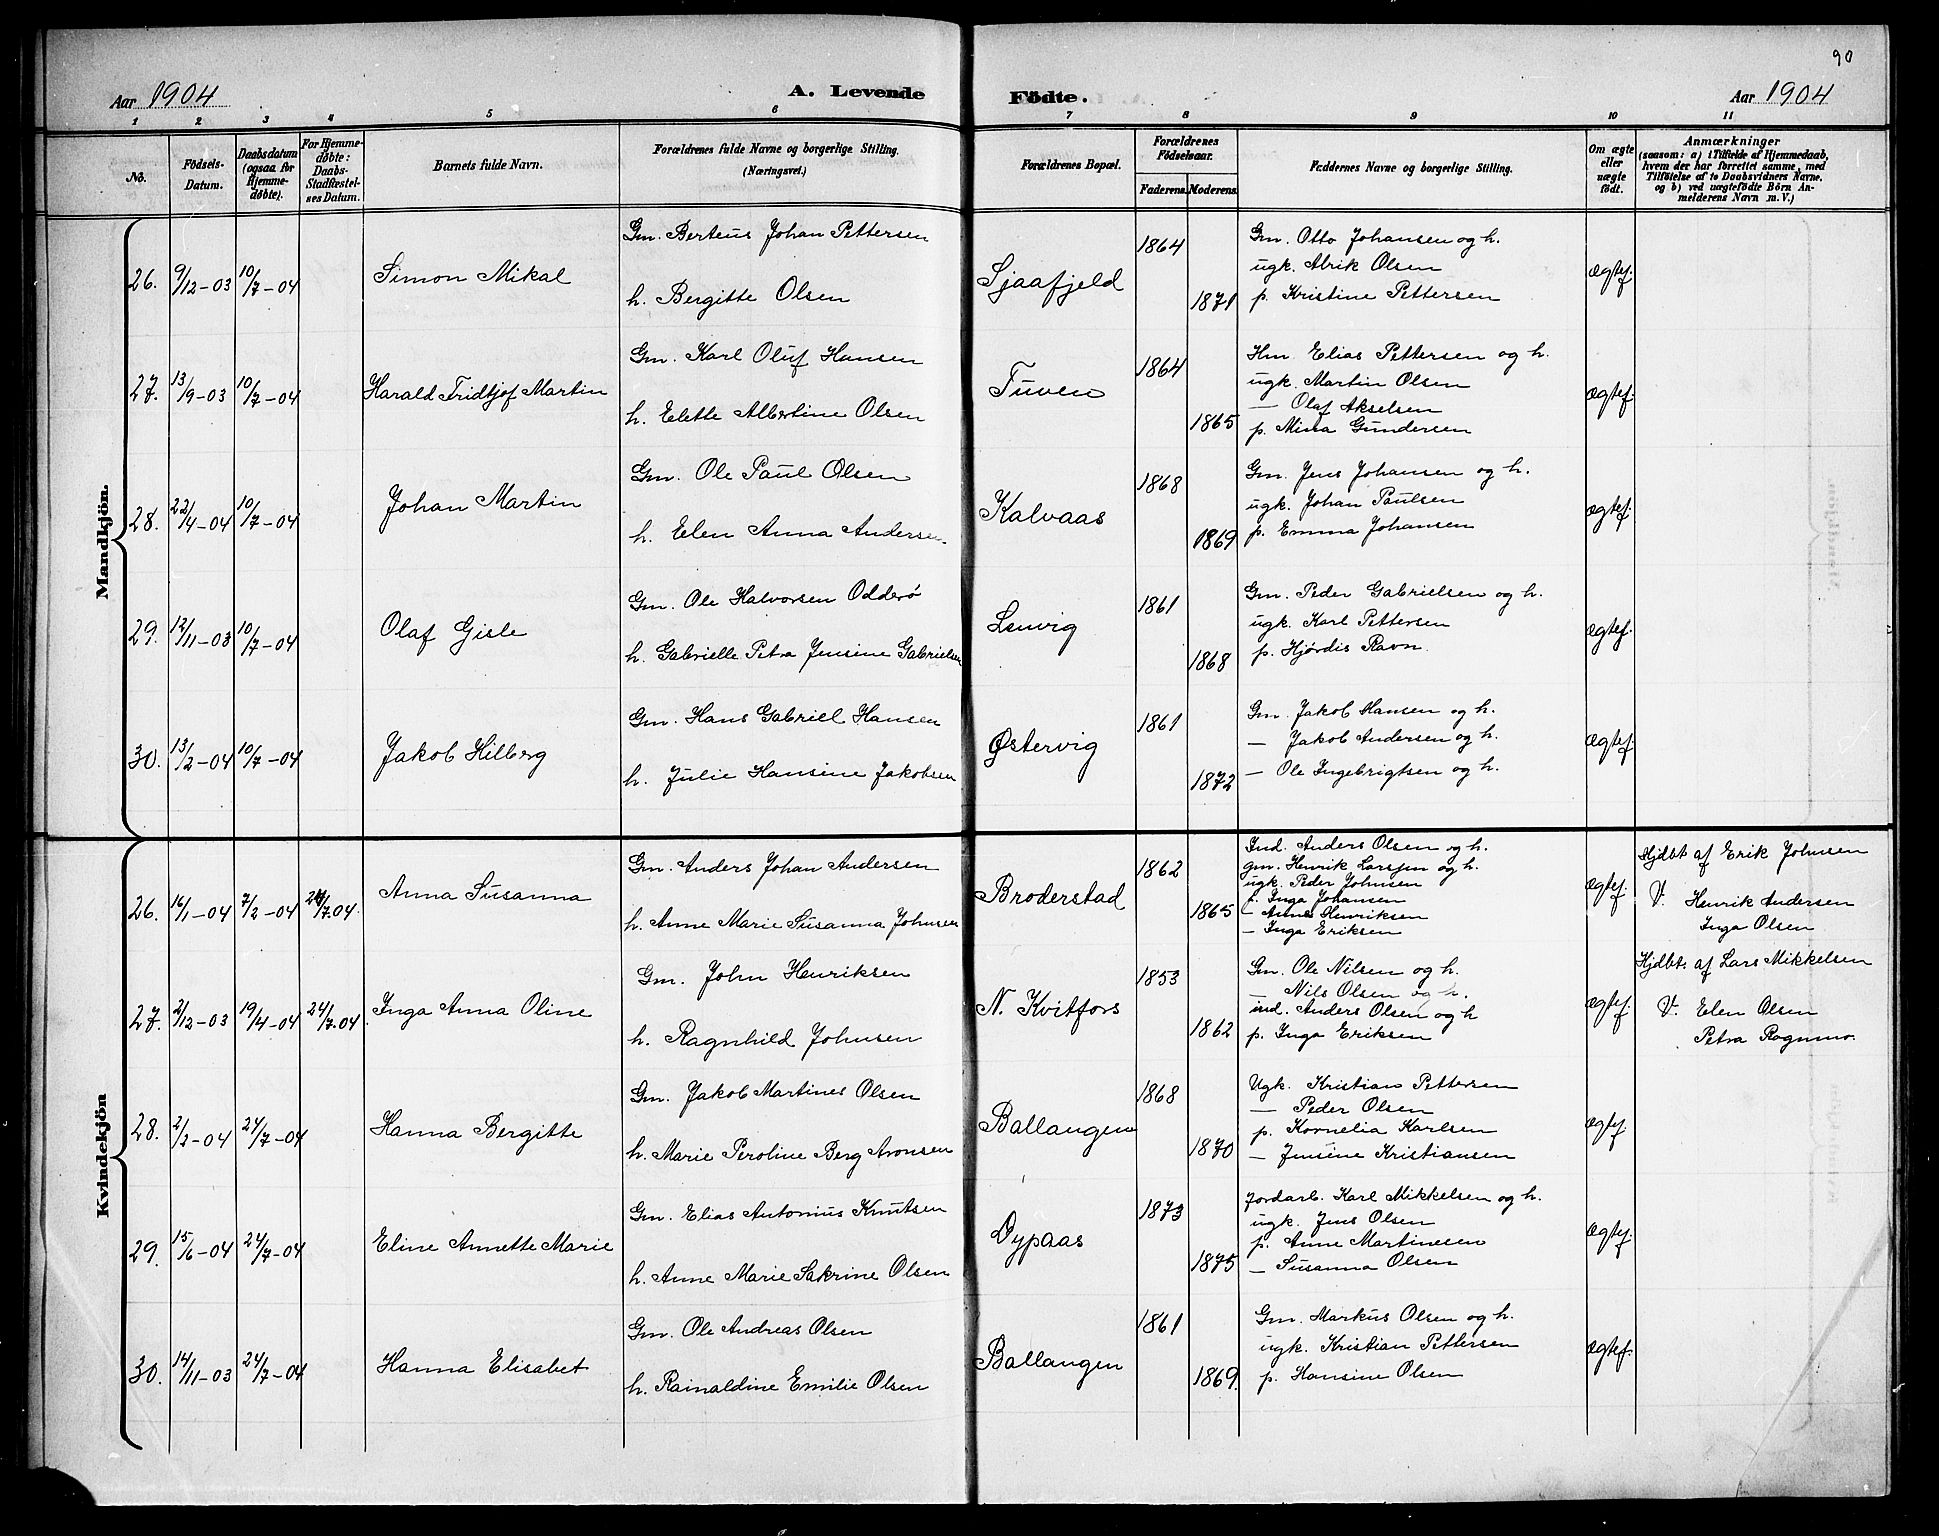 90
Aar 1904
A. Levende Fødte.
Aar 1904
1 2 3 4 5 6 7 8 9 10 11
No.
Fødsels-Datum.
Daabsdatum (ogsaa for Hjemmedøbte).
For Hjemmedøbte: Daabs-Stadfæstelses Datum.
Barnets fulde Navn.
Forældrenes fulde Navne og borgerlige Stilling. (Næringsvei.)
Forældrenes Bopæl.
Forældrenes Fødselsaar.
Faderens. Moderens.
Faddernes Navne og borgerlige Stilling.
Om ægte eller uægte født.
Anmærkninger
(saasom: a) i Tilfælde af Hjemmedaab, hvem der har forrettet samme, med Tilføielse af to Daabsvidners Navne, og b) ved uægtefødte Börn Anmelderens Navn m. V.)
Mandkjön.
26. 9/12-03 10/7-04 Simon Mikal
Gm. Berteus Johan Pettersen
h. Bergitte Olsen
Sjaafjeld 1864 1871
Gm. Otto Johansen og h.
ugk. Alrik Olsen
p. Kristine Pettersen
ægtef.
27. 13/9-03 10/7-04 Harald Fridtjof Martin
Gm. Karl Oluf Hansen
h. Elette Albertine Olsen
Tuven 1864 1865
Hm Elias Pettersen og h.
ugk. Martin Olsen
— Olaf Akselsen
p. Mina Gundersen
ægtef.
28. 22/4-04 10/7-04 Johan Martin
Gm. Ole Paul Olsen
h. Elen Anna Andersen.
Kalvaas 1868 1869
Gm. Jens Johansen og h.
ugk. Johan Paulsen
p. Emma Johansen
ægtef.
29. 12/11-03 10/7-04 Olaf Gisle
Gm. Ole Halvorsen Odderø
h. Gabrielle Petra Jensine Gabrielsen
Lenvig 1861 1868
Gm. Peder Gabrielsen og h.
ugk. Karl Pettersen
p. Hjørdis Ravn.
ægtef.
30. 13/2-04 10/7-04 Jakob Hilberg
Gm. Hans Gabriel Hansen
h. Julie Hansine Jakobsen
Østervig 1861 1872
Gm. Jakob Hansen og h.
— Jakob Andersen og h.
— Ole Ingebrigtsen og h.
ægtef.
Kvindekjön
26. 16/1-04 7/2-04 24/7.04. Anna Susanna
Gm. Anders Johan Andersen
h. Anne Marie Susanna Johnsen
Broderstad 1862 1865
Ind. Anders Olsen og h.
gm. Henrik Larssen og h.
ugk. Peder Johnsen
p. Inga Johansen
— Anne Henriksen
— Inga Eriksen
ægtef.
Hjdbt af Erik Johnsen
V. Henrik Andersen
Inga Olsen
27. 2/12-03 19/4-04 24/7.04. Inga Anna Oline
Gm. John Henriksen
h. Ragnhild Johnsen
N. Kvitfors 1853 1862
Gm. Ole Nilsen og h.
— Nils Olsen og h.
ind. Anders Olsen og h
p. Inga Eriksen
ægtef.
Hjdbt. af Lars Mikkelsen
V. Elen Olsen
Petra Rognmo.
28. 2/2-04 24/7-04 Hanna Bergitte
Gm. Jakob Martines Olsen
h. Marie Peroline Berg Aronsen
Ballangen 1868 1870
Ugk. Kristian Pettersen
— Peder Olsen
p. Kornelia Karlsen
— Jensine Kristiansen
ægtef.
29. 15/6-04 24/7-04 Eline Annette Marie
Gm. Elias Antonius Knutsen
h. Anne Marie Sakrine Olsen
Dypaas 1873 1875
Jordarb. Karl Mikkelsen og h.
ugk. Jens Olsen
p. Anne Martinesen
— Susanna Olsen
ægtef.
30. 14/11-03 24/7-04 Hanna Elisabet
Gm. Ole Andreas Olsen
h. Rainaldine Emilie Olsen
Ballangen 1861 1869.
Gm. Markus Olsen og h.
ugk. Kristian Pettersen
p. Hansine Olsen
ægtef.